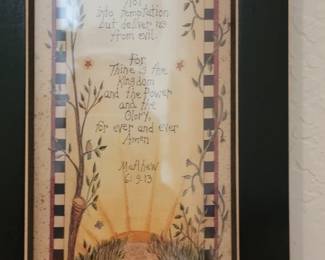 not
into temptation
but deliver us
from evil.
For
Thine is the
Kingdom
and the Power
and the
Glory,
for ever and ever
Amen
Matthew
6:9-13